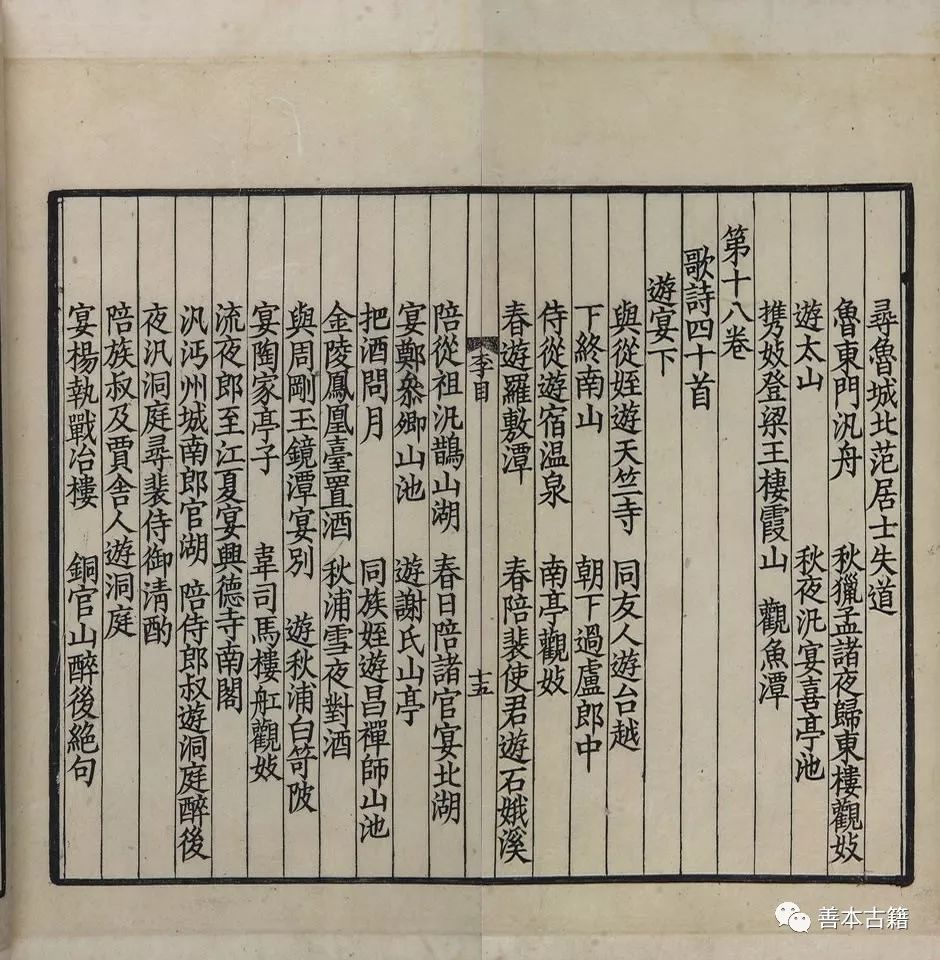 尋魯城北范居士失道
魯東門汎舟　秋獵孟諸夜歸東樓觀妓
遊太山　秋夜汎宴喜亭池
携妓登梁王棲霞山　觀魚潭
第十八卷
歌詩四十首
遊宴下
與從姪遊天竺寺　同友人遊台越
下終南山　朝下過盧郎中
侍從遊宿温泉　南亭觀妓
春遊羅敷潭　春陪裴使君遊石娥溪
李目　十五
陪從祖汎鵲山湖　春日陪諸官宴北湖
宴鄭叅卿山池　遊謝氏山亭
把酒問月　同族姪遊昌禪師山池
金陵鳳凰臺置酒　秋浦雪夜對酒
與周剛玉鏡潭宴別　遊秋浦白笴陂
宴陶家亭子　韋司馬樓舡觀妓
流夜郎至江夏宴興德寺南閣
汎沔州城南郎官湖　陪侍郎叔遊洞庭醉後
夜汎洞庭尋裴侍御清酌
陪族叔及賈舍人遊洞庭
宴楊執戰冶樓　銅官山醉後絕句
善本古籍